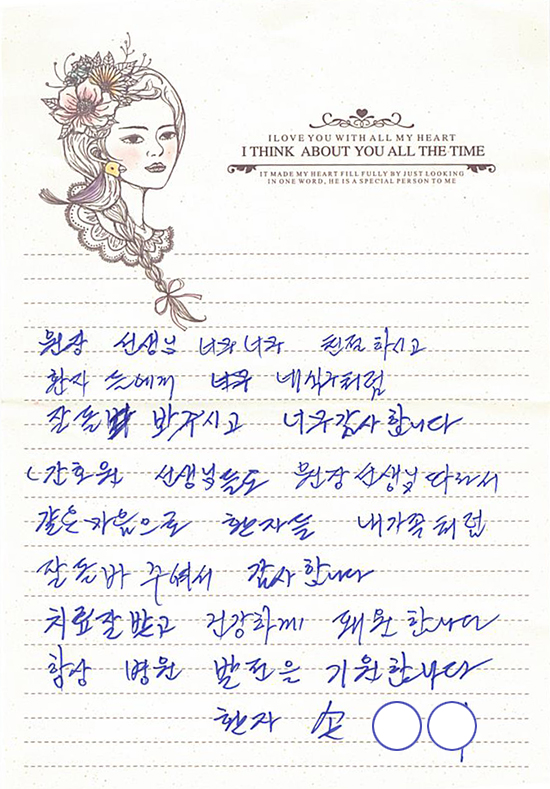 I LOVE YOU WITH ALL MY HEART
I THINK ABOUT YOU ALL THE TIME
IT MADE MY HEART FILL FULLY BY JUST LOOKING
IN ONE WORD, HE IS A SPECIAL PERSON TO ME
원장 선생님 너무너무 친절하시고
환자 들에게 너무 내식구처럼
잘돌봐 봐주시고 너무감사합니다
간호원 선생님들도 원장선생님 따라서
같은마음으로 환자들 내가족처럼
잘돌바 주여서 감사합니다
치료잘받고 건강하께 퇘원합니다
항상 병원 발전은 기원합니다
환자 손